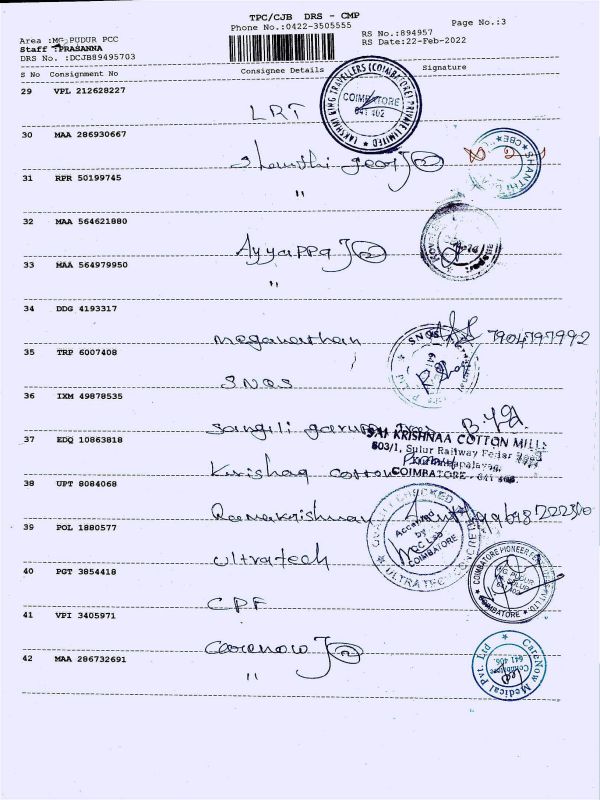 TPC/CJB DRS - CMP
Phone No.:0422-3505555
Page No.:3
Area :MG PUDUR PCC
RS No.:894957
Staff :PRASANNA
RS Date:22-Feb-2022
DRS No. :DCJB89495703
S No Consignment No Consignee Details Signature
29 VPL 212628227
LRT
LAKSHMI RING TRAVELLERS (COIMBATORE) PRIVATE LIMITED
COIMBATORE
641 402
30 MAA 286930667
31 RPR 50199745
"
32 MAA 564621880
Ayyappa
33 MAA 564979950
"
34 DDG 4193317
Meganathan 7904797992
35 TRP 6007408
SNQS
36 IXM 49878535
37 EDQ 10863818
SAI KRISHNAA COTTON MILL
603/1, Sulur Railway Feder Road
COIMBATORE - 641
Krishna Cotton
38 UPT 8084068
Ramakrishnan
39 POL 1880577
Ultratech
Accepted
by
COIMBATORE
40 PGT 3854418
CPF
COIMBATORE PIONEER
MG PUDUR
COIMBATORE
41 VPI 3405971
Carenow
42 MAA 286732691
"
CareNow Medical Pvt. Ltd
Coimbatore
641 406.